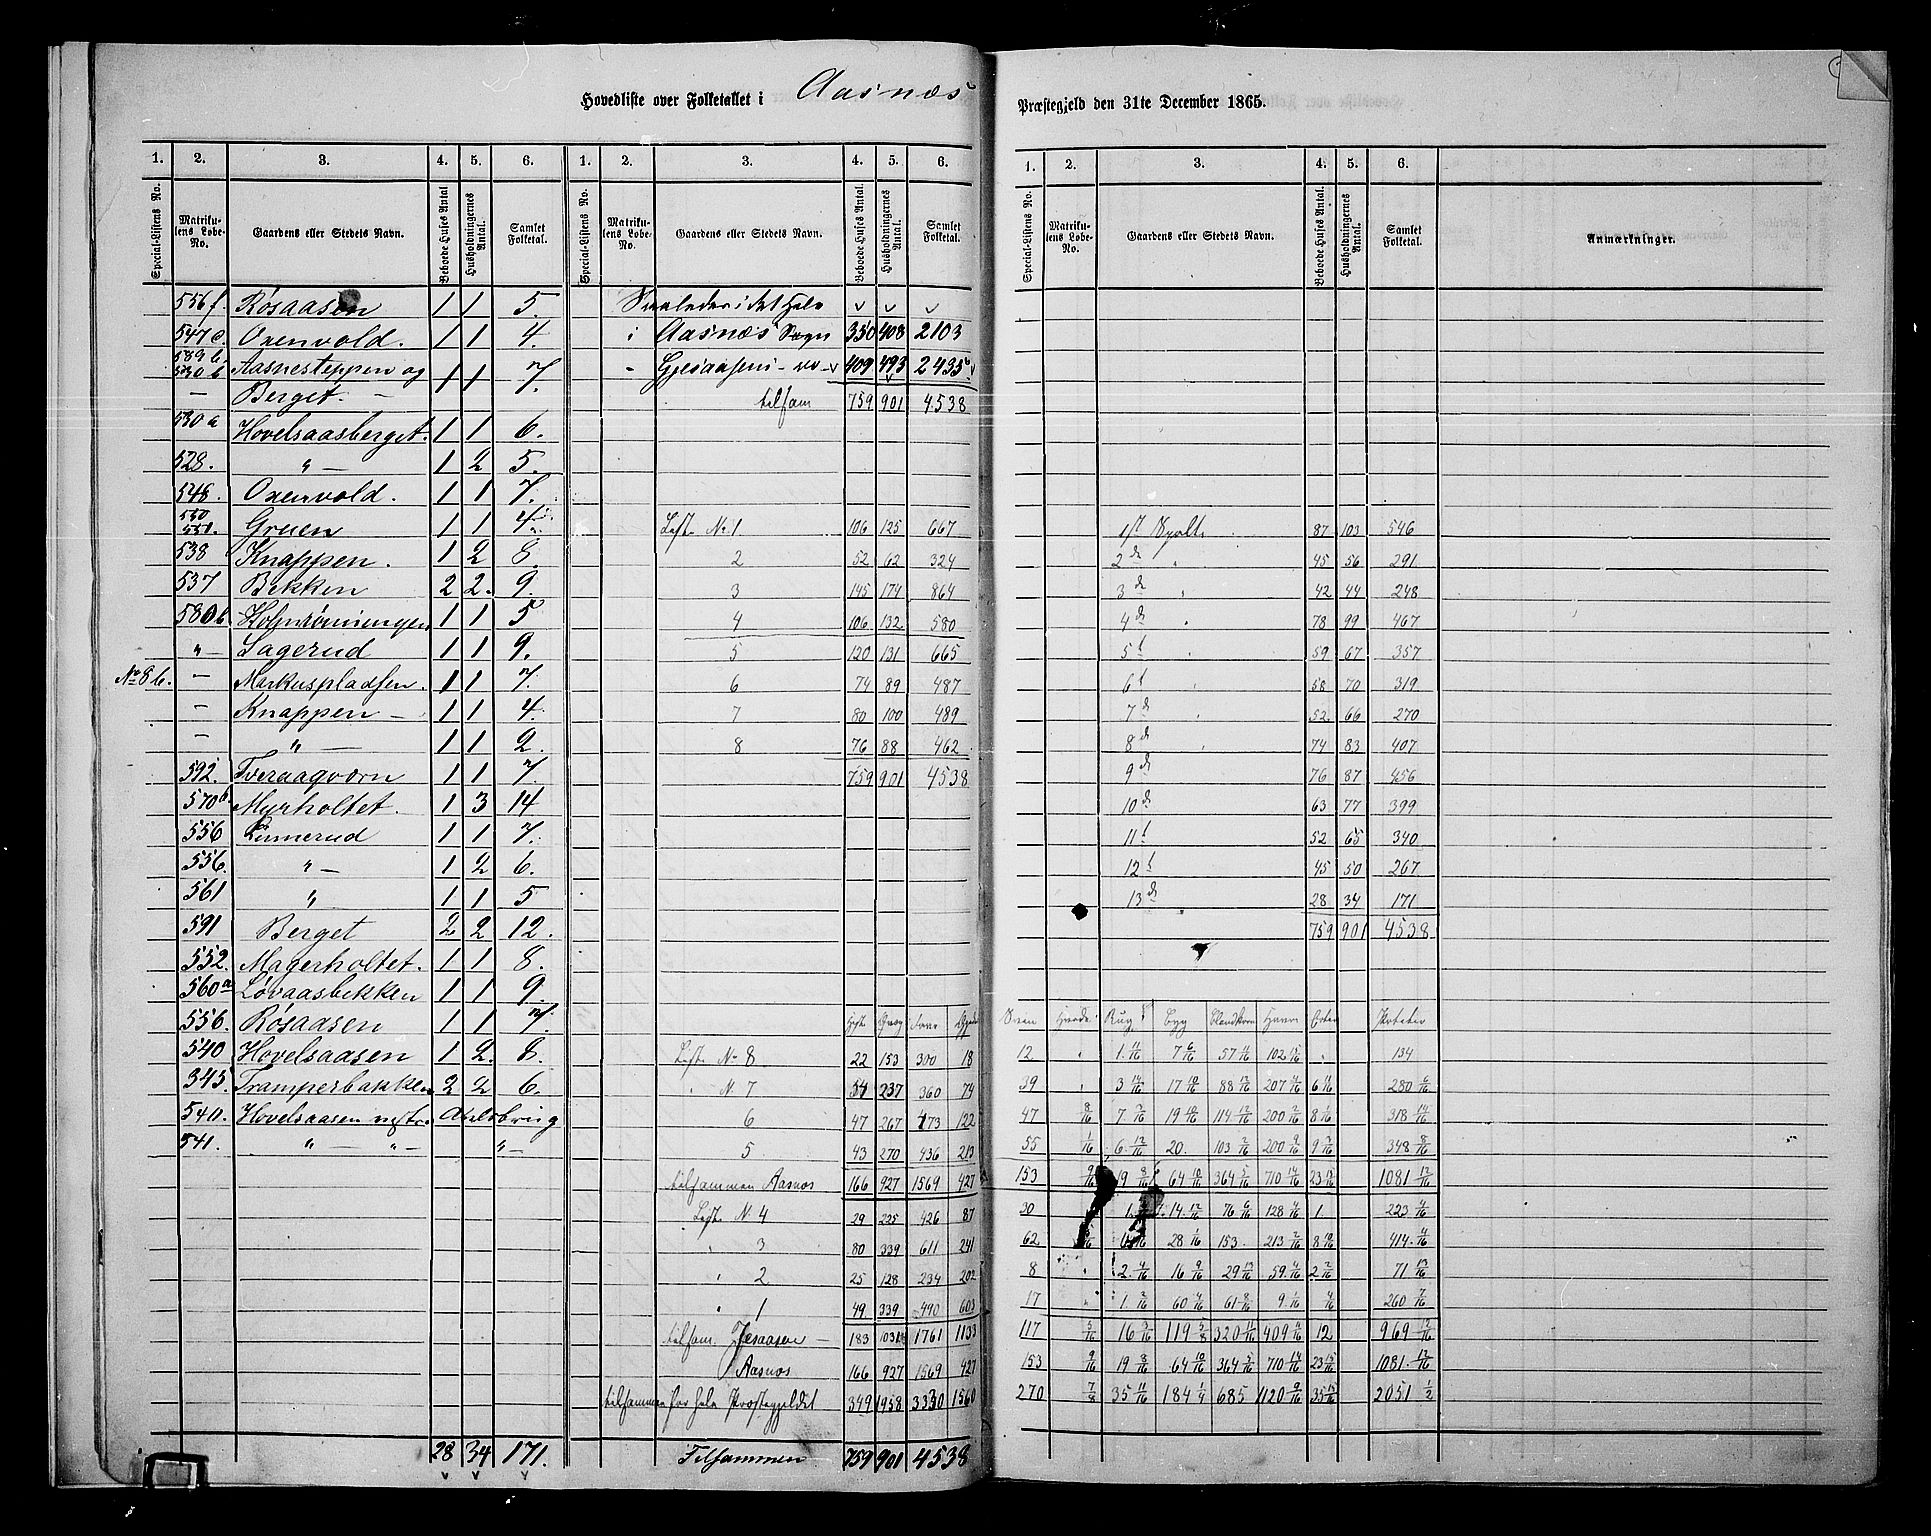 Hovedliste over Folketallet i Aasnæs
Præstegjeld den 31te December 1865.
1. 2. 3. 4. 5. 6. 1. 2. 3. 4. 5. 6.
Special-Listens No. Matrikulens Løbe-No. Gaardens eller Stedets Navn. Beboede Huses Antal Husholdningernes Antal. Samlet Folketal. Special-Listens No. Matrikulens Løbe-No. Gaardens eller Stedets Navn. Beboede Huses Antal. Husholdningernes Antal. Samlet Folketal.
556f. Røsaasen 1 1 5.
547c. Oxenvold. 1 1 4.
589b. 530b Aasnesteppen og 1 1 7.
— Berget. —
530a Hovelsaasberget. 1 1 6.
528. " — 1 2 5.
548. Oxenvold. 1 1 7.
550 551. Gruen 1 1 4.
538 Knappen. 1 2 8.
537 Bekken 2 2. 9.
580b Holmrønningen 1 1 5
" — Lagerud 1 1 9.
No 8b. — Markuspladsen. 1 1 7.
— Knappen — 1 1 4.
— " — 1 1 2.
592. Tveraaqvern 1 1 7.
570b. Myrholtet. 1 3 14
556 Linnerud 1 1 7.
556. " — 1 2 6.
561 " 1 1 5
591 Berget 2 2 12.
552. Magerholtet. 1 1 8.
560a Løvaasbekken 1 1 9.
556. Røsaasen 1 1 7.
540 Hovelsaasen 1 2. 8.
343. Tramperbakken 2 2 6.
540. Hovelsaasen vestre Axelsbrug
541. " — " — " —
28 34 171.
Saaledes i det Hele
i Aasnæs Sogn 350 408 2103
- Gjesaasens - do - 409 493 2435
tilsam 759 901 4538
Liste No 1 106 125 667
2 52 62 324
3 145 174 864
4 106 132. 580
5 120 131 665
6 74 89 487
7 80 100 489
8 76 88 462
759 901 4538
Heste Qvæg Faar Gjeder
Liste No 8 22 153 300 18
" N. 7 54 237 360 74
6 47 267 473 122
5 43 270 436 213
tilsammen Aasnæs 166 927 1569 427
Liste N 4 29 225 426 87
" 3 80 339 611 241
" 2 25 128 234 202
" 1 49 339 490 603
tilsam. Gjesaasen — 183 1031 1761 1133
Aasnæs 166 927 1569 427
tilsammen for hele Præstegjeldet 349 1958 3330 1560
Tilsammen 759 901 4538
1. 2. 3. 4. 5. 6.
Special-Listens No. Matrikulens Løbe-No. Gaardens eller Stedets Navn. Beboede Huses Antal. Husholdningernes Antal. Samlet Folketal. Anmærkninger.
1st Spalte 87 103 546
2de " 45 56 291
3de " 42 44 248
4de " 78 99 467
5t " 59 67 357
6t " 58 70 319
7de " 52. 66 270
8de " 74 83 407
9de 76 87 456
10de 63 77 399
11t 52 65 340
12t 45 50 267
13de 28 34 171
759 901 4538
Sviin Hvede Rug Byg Blandkorn Havre Erter Poteter
12 " 1. 11/16 7 6/16 57 11/16 102 15/16 " 134
39 " 3 14/16 17 10/16 88 12/16 207 4/16 6 11/16 280 6/16
47 8/16 7. 7/16 19 10/16 114 12/16 200 2/16 8 1/16 318 14/16
55 1/16 6. 12/16 20. 103 2/16 200 9/16 9 3/16 348 8/16
153 9/16 19 8/16 64 10/16 364 5/16 710 14/16 23 15/16 1081 12/16
30 14. 12/16 76 6/16 128 4/16 1 223 4/16
62 28 1/16 153. 213 2/16 8 10/16 414. 4/16
8 " 2. 4/16 16 9/16 29 13/16 59. 4/16 2 2/16 71 13/16
17 " 1. 2/16 60 4/16 61 8/16 9. 1/16 4/16 260 7/16
117 5/16 16 3/16 119 5/8 320 11/16 409 11/16 12 969 12/16
153 9/16 19 8/16 64 10/16 364 5/16 710 14/16 23 15/16 1081. 12/16
270 7/8 35 11/16 184 1/4 685 1120 9/16 35 15/16 2051 1/2